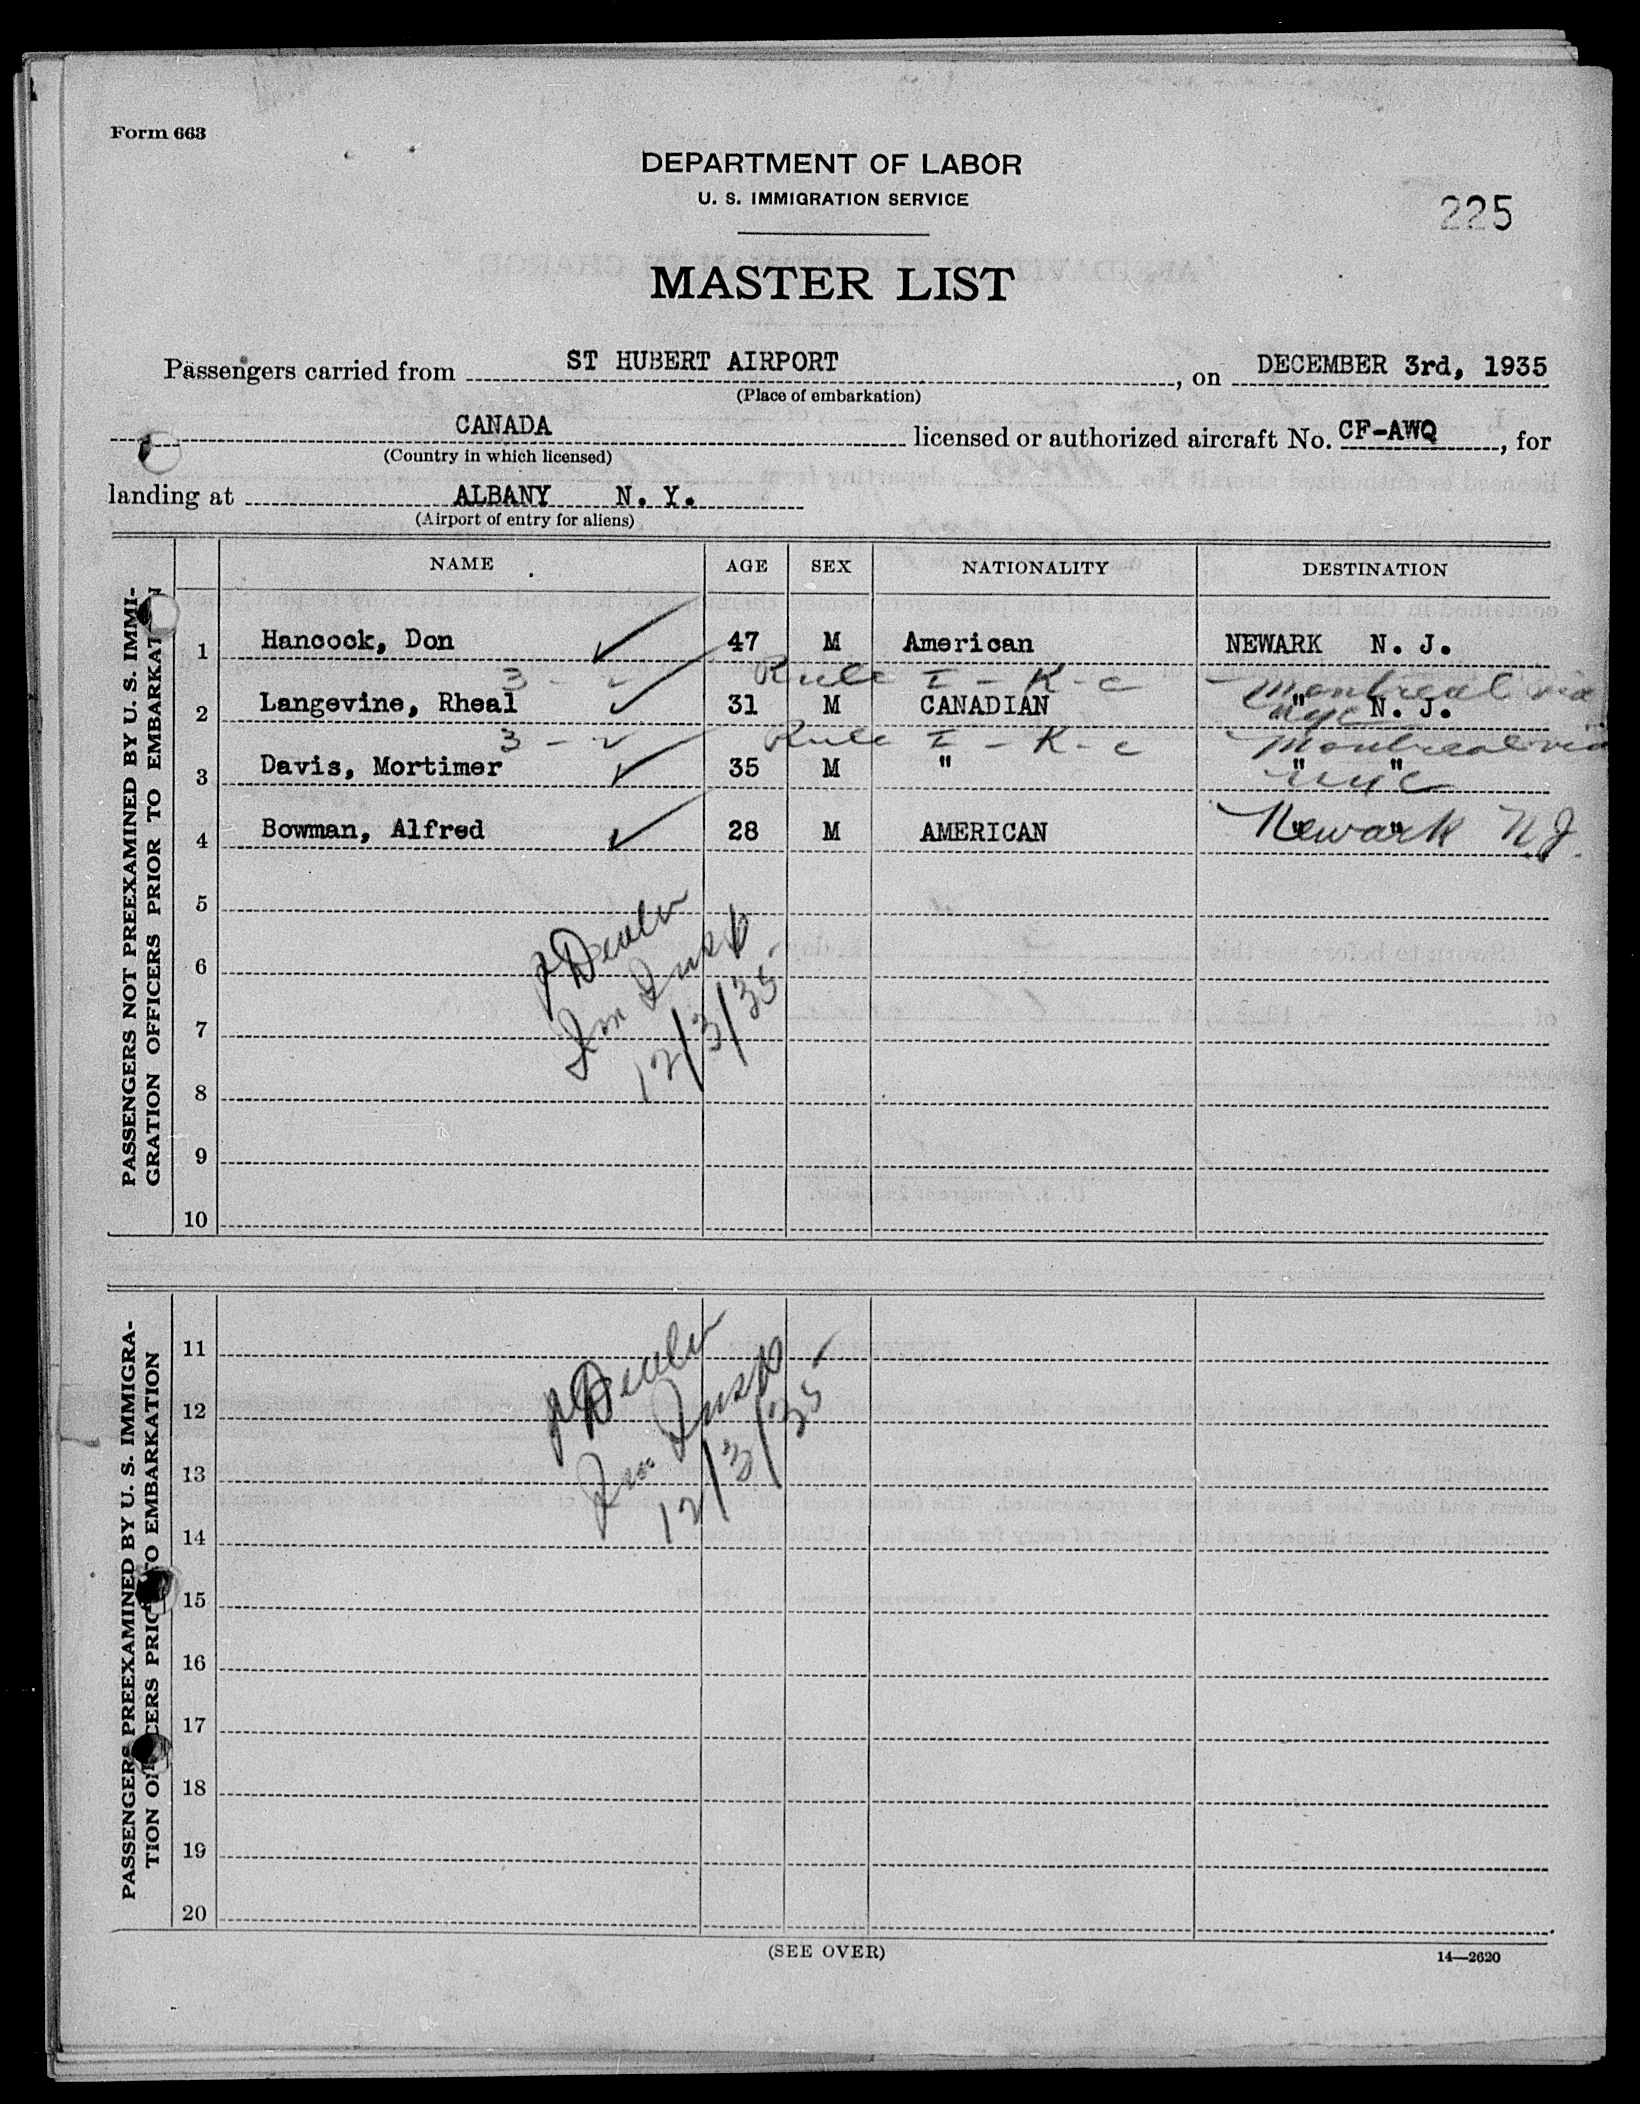 Form 663
DEPARTMENT OF LABOR
U. S. IMMIGRATION SERVICE
225
MASTER LIST
Passengers carried from ST HUBERT AIRPORT, on DECEMBER 3rd, 1935
(Place of embarkation)
CANADA licensed or authorized aircraft No. CF-AWQ, for
(Country in which licensed)
landing at ALBANY N. Y.
(Airport of entry for aliens)
NAME AGE SEX NATIONALITY DESTINATION
PASSENGERS NOT PREEXAMINED BY U. S. IMMI-
GRATION OFFICERS PRIOR TO EMBARKATION
1 Hancock, Don 47 M American NEWARK N. J.
3 - v Rule I - K - c Montreal via
2 Langevine, Rheal 31 M CANADIAN " N. J.
NYC
3 - v Rule I - K - c Montreal via
3 Davis, Mortimer 35 M " " "
NYC
4 Bowman, Alfred 28 M AMERICAN " "
Newark N.J.
5
6
7
12/3/35
8
9
10
PASSENGERS PREEXAMINED BY U. S. IMMIGRA-
TION OFFICERS PRIOR TO EMBARKATION
11
12
Imm Insp
13
12/3/35
14
15
16
17
18
19
20
(SEE OVER)
14—2620